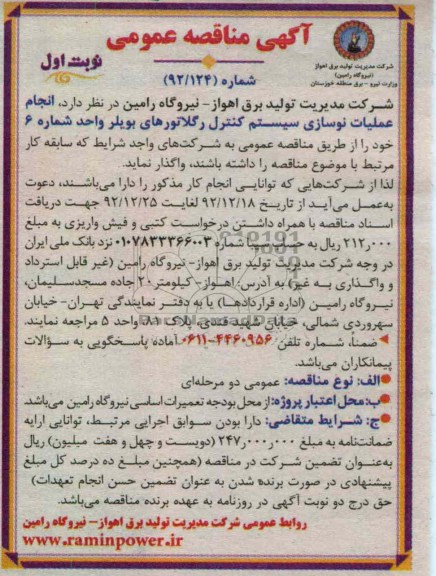 آگهی مناقصه عمومی
نوبت اول
شماره (۹۲/۱۲۴)
شرکت مدیریت تولید برق اهواز
(نیروگاه رامین)
وزارت نیرو - برق منطقه خوزستان
شرکت مدیریت تولید برق اهواز- نیروگاه رامین در نظر دارد، انجام
عملیات نوسازی سیستم کنترل رگلاتورهای بویلر واحد شماره ۶
خود را از طریق مناقصه عمومی به شرکت‌های واجد شرایط که سابقه کار
مرتبط با موضوع مناقصه را داشته باشند، واگذار نماید.
لذا از شرکت‌هایی که توانایی انجام کار مذکور را دارا می‌باشند، دعوت
به‌عمل می‌آید از تاریخ ۹۲/۱۲/۱۸ لغایت ۹۲/۱۲/۲۵ جهت دریافت
اسناد مناقصه با همراه داشتن درخواست کتبی و فیش واریزی به مبلغ
۲۱۲ر۰۰۰ ریال به حساب شماره ۰۱۰۷۸۳۳۳۶۶۰۰۳ نزد بانک ملی ایران
در وجه شرکت مدیریت تولید برق اهواز- نیروگاه رامین (غیر قابل استرداد
و واگذاری به غیر) به آدرس: اهواز- کیلومتر ۲۰ جاده مسجدسلیمان،
نیروگاه رامین (اداره قراردادها) یا به دفتر نمایندگی تهران- خیابان
سهروردی شمالی، خیابان شهیدقندی، پلاک ۸۱، واحد ۵ مراجعه نمایند.
ضمناً، شماره تلفن ۴۴۶۰۹۵۶-۰۶۱۱ آماده پاسخگویی به سؤالات
پیمانکاران می‌باشد.
الف: نوع مناقصه: عمومی دو مرحله‌ای
ب: محل اعتبار پروژه: از محل بودجه تعمیرات اساسی نیروگاه رامین می‌باشد.
ج: شرایط متقاضی: دارا بودن سوابق اجرایی مرتبط، توانایی ارایه
ضمانت‌نامه به مبلغ ۲۴۷ر۰۰۰ر۰۰۰ (دویست و چهل و هفت میلیون) ریال
به‌عنوان تضمین شرکت در مناقصه (همچنین مبلغ ده درصد کل مبلغ
پیشنهادی در صورت برنده شدن به عنوان تضمین حسن انجام تعهدات)
حق درج دو نوبت آگهی در روزنامه به عهده برنده مناقصه می‌باشد.
روابط عمومی شرکت مدیریت تولید برق اهواز- نیروگاه رامین
www.raminpower.ir